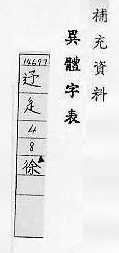 補充資料
異體字表
14697
辵
4
8
徐